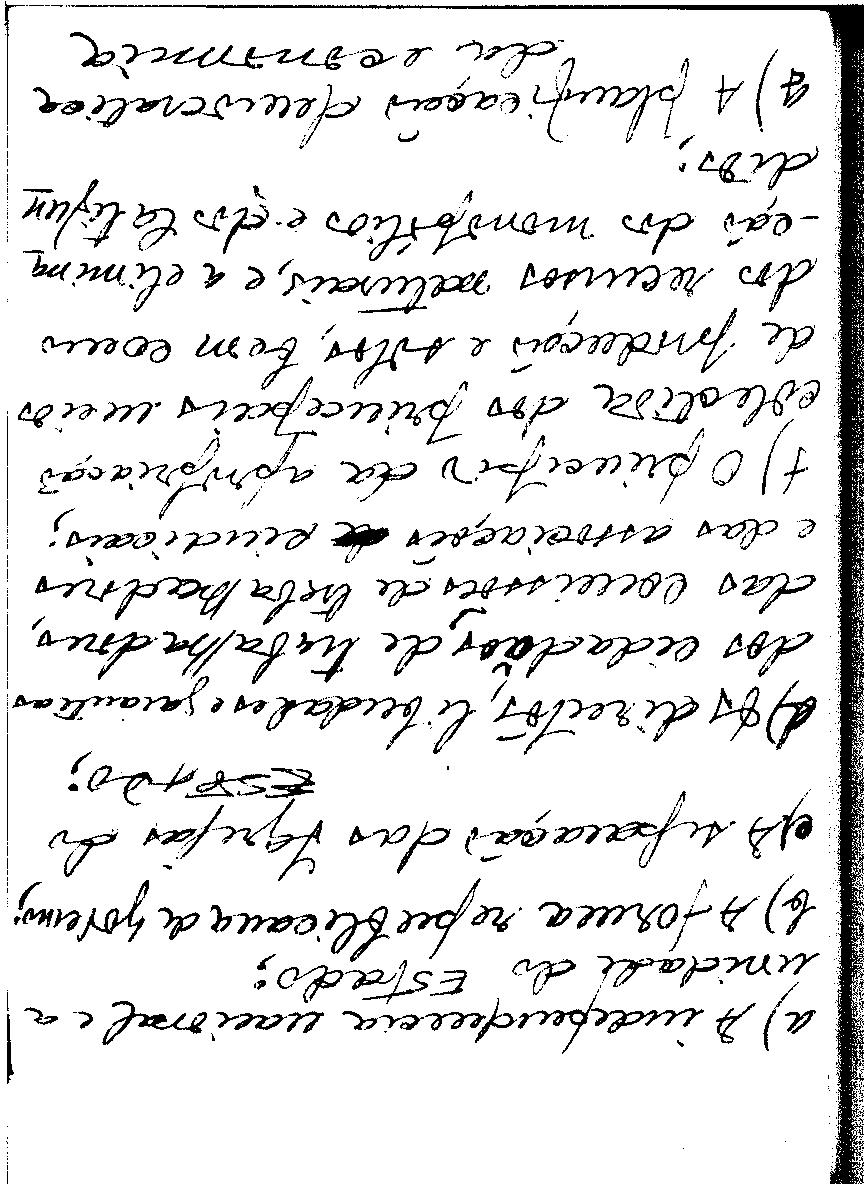 a) A independencia nacional e a
unidade do Estado;
b) A forma republicana de governo;
c) A separação das Igrejas do
ESTADO;
d) Os direitos, liberdades e garantias
dos cidadãos, de trabalhadores,
das comissões de trabalhadores
e das associações sindicais;
f) O principio da apropriação
colectiva dos principais meios
de produção e solos, bem como
dos recursos naturais, e a elimina
-ção dos monopólios e dos latifun
dios;
g) A planificação democratica
da economia